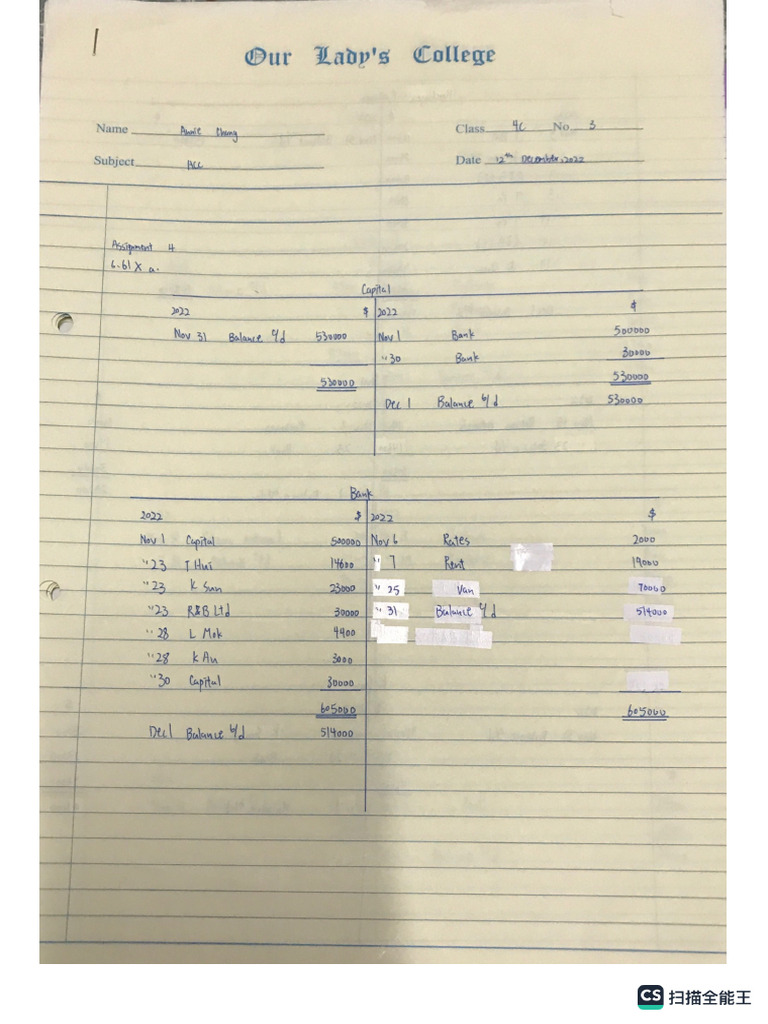 Our Lady's College
Name Annie Chang Class 4C No. 3
Subject ACC Date 12th December, 2022
Assignment 4
6.61 X a.
Capital
2022 $ 2022 $
Nov 31 Balance c/d 530000 Nov 1 Bank 500000
"30 Bank 30000
530000 530000
Dec 1 Balance b/d 530000
Bank
2022 $ 2022 $
Nov 1 Capital 500000 Nov 6 Rates 2000
"23 T Hui 14600 " 7 Rent 19000
"23 K Sun 23000 " 25 Van 70000
"23 R&B Ltd 30000 " 31 Balance c/d 514000
"28 L Mok 4400
"28 K Au 3000
"30 Capital 30000
605000 605000
Dec 1 Balance b/d 514000
CS 扫描全能王